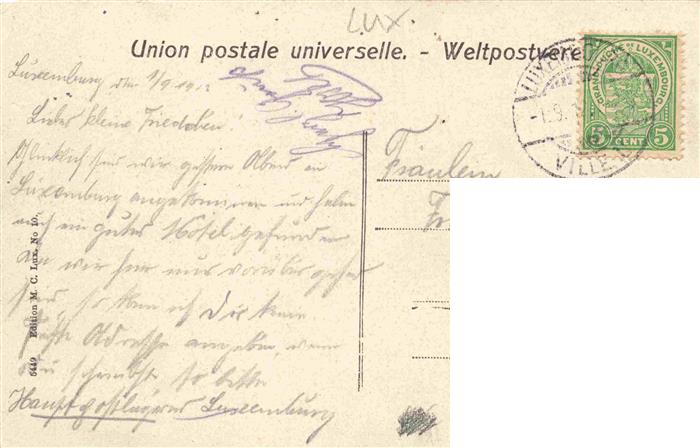 LUX
Union postale universelle. - Weltpostvere
Luxemburg den 1/9 191
Liebes kleine Friedchen!
Glücklich sind wir gestern Abend in
Luxemburg angekommen und haben
auch ein gutes Hotel gefunden
wir hier nur vorüber gehend
sind, so kann ich Dir keine
Adresse angeben, wenn
Du schreibst so bitte
Hauptpostlagernd Luxemburg
Fräulein
Fr
6449 Edition M. C. Lux. No 10.
GRAND-DUCHÉ DE LUXEMBOURG
5 CENT 5
LUXEMBOURG
-1.9.1
VILLE